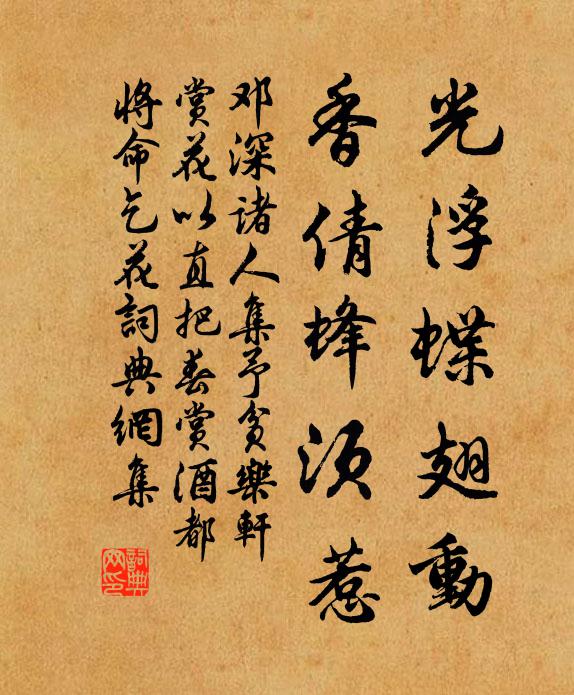 光浮蝶翅動
香倩蜂须惹
邓深诸人集予贫樂軒
赏花以直把春赏酒都
将命乞花詞典網集
詞典网印